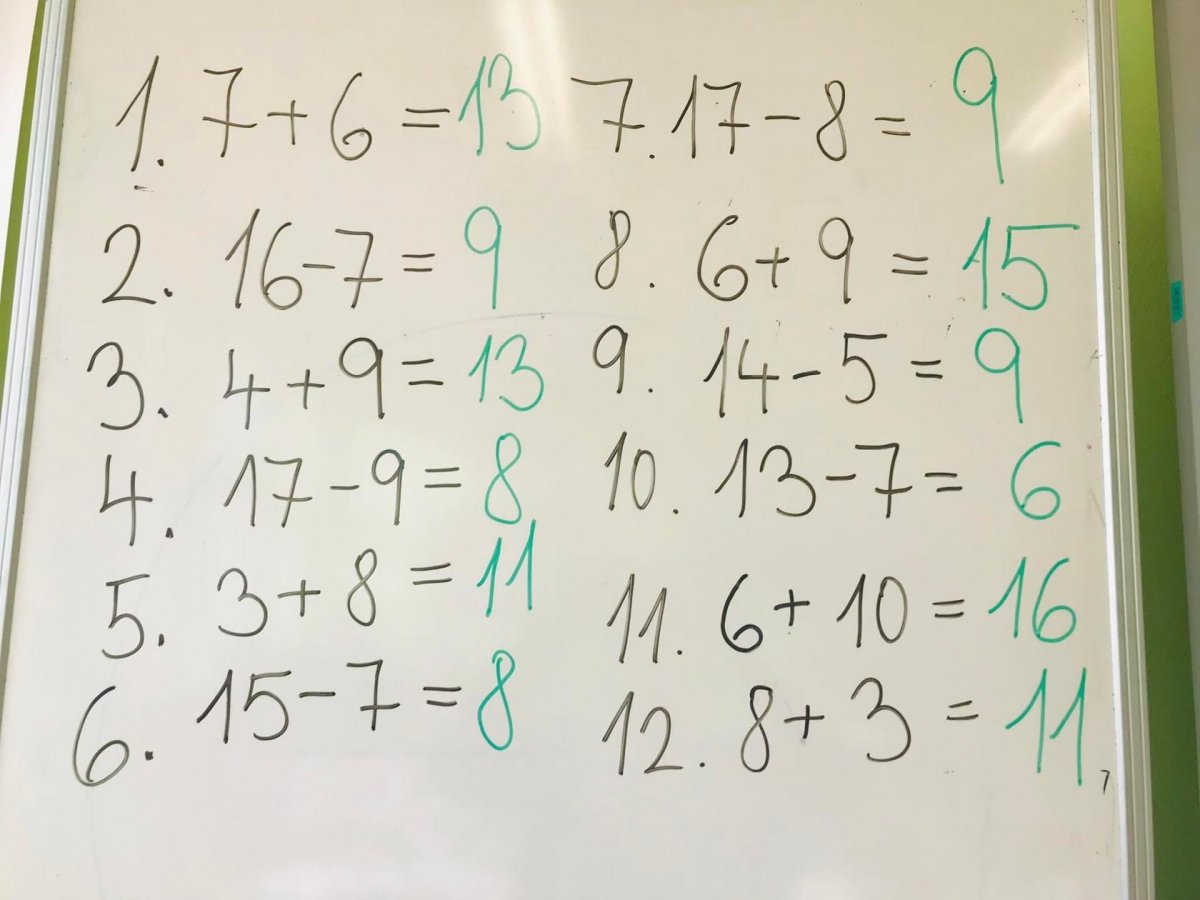 1. 7+6=13
2. 16-7=9
3. 4+9=13
4. 17-9=8
5. 3+8=11
6. 15-7=8
7. 17-8=9
8. 6+9=15
9. 14-5=9
10. 13-7=6
11. 6+10=16
12. 8+3=11
7